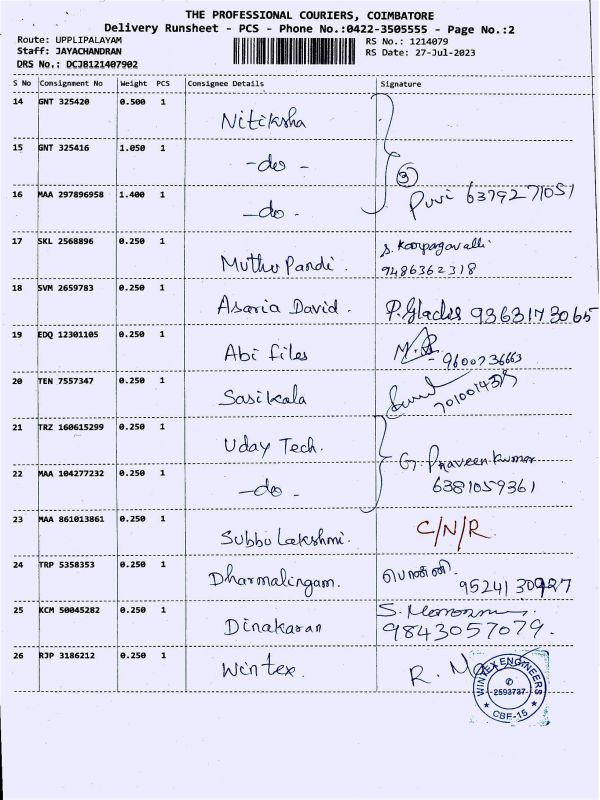 THE PROFESSIONAL COURIERS, COIMBATORE
Delivery Runsheet - PCS - Phone No.:0422-3505555 - Page No.:2
Route: UPPLIPALAYAM
Staff: JAYACHANDRAN
DRS No.: DCJB121407902
RS No.: 1214079
RS Date: 27-Jul-2023
S No Consignment No Weight PCS Consignee Details Signature
14 GNT 325420 0.500 1 Nitiksha
15 GNT 325416 1.050 1 -do-
16 MAA 297896958 1.400 1 -do-
③
Puvi 6379271051
17 SKL 2568896 0.250 1 Muthu Pandi. S. Karpagavalli
9486362318
18 SVM 2659783 0.250 1 Asaria David. P. Gladis 9363173065
19 EDQ 12301105 0.250 1 Abi files
9600736663
20 TEN 7557347 0.250 1 Sasikala
21 TRZ 160615299 0.250 1 Uday Tech. G. Praveen Kumar
22 MAA 104277232 0.250 1 -do- 6381059361
23 MAA 861013861 0.250 1 Subbu Lakshmi. C/N/R
24 TRP 5358353 0.250 1 Dharmalingam. பொன்னி
25 KCM 50045282 0.250 1 Dinakaran S.
9843057079.
26 RJP 3186212 0.250 1 Wintex. R.
WINTEX ENGINEERS
✆
2593737
★ CBE-15 ★